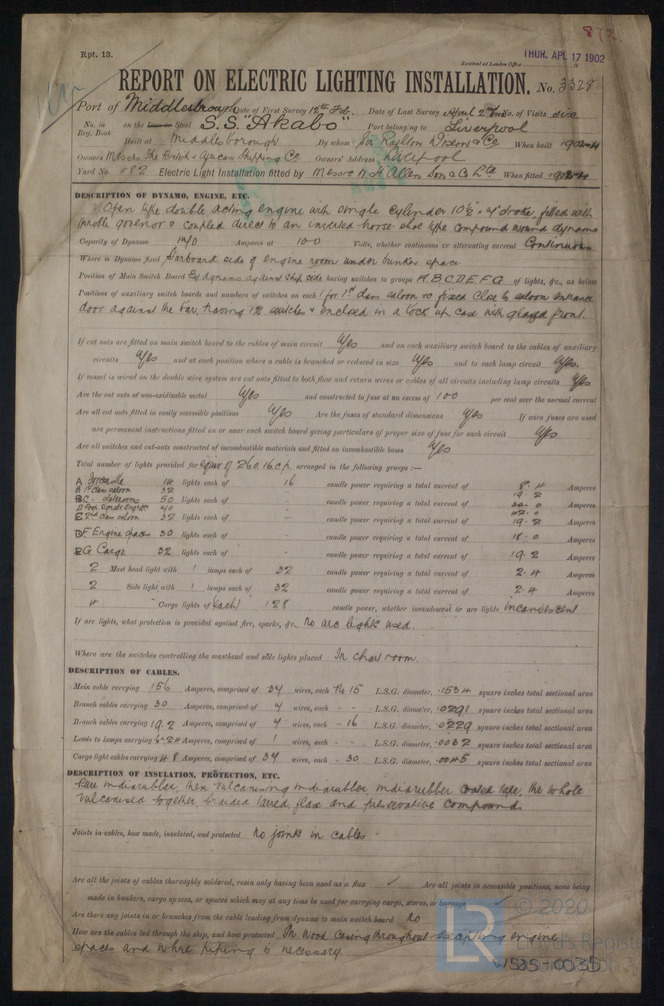 872
Rpt. 13.
THUR. APL 17 1902
Received at London Office
REPORT ON ELECTRIC LIGHTING INSTALLATION. No. 3328
Port of Middlesbrough Date of First Survey 12th Feb. Date of Last Survey April 2 No. of Visits six
No. in Reg. Book on the Steel S.S. "Akabo" Port belonging to Liverpool
Built at Middlesborough By whom Sir Raylton Dixon & Co When built 1902-4
Owners Messrs The British & African Shipping Co Owners' Address Liverpool
Yard No. 482 Electric Light Installation fitted by Messrs W. H. Allen Son & Co Ltd When fitted 1902-4
DESCRIPTION OF DYNAMO, ENGINE, ETC.
Open type double acting engine with single cylinder 10½ - 4" stroke, fitted with
throttle govenor & coupled direct to an inverted horse shoe type compound wound dynamo
Capacity of Dynamo 140 Amperes at 100 Volts, whether continuous or alternating current Continuous
Where is Dynamo fixed Starboard side of engine room under bunker space
Position of Main Switch Board By dynamo against ship side having switches to groups A.B.C.D.E.F.G of lights, &c., as below
Positions of auxiliary switch boards and numbers of switches on each 1 for 1st class saloon &c fixed close to saloon entrance
door against the bar, having 12 switches & enclosed in a lock up case with glazed front.
If cut outs are fitted on main switch board to the cables of main circuit Yes and on each auxiliary switch board to the cables of auxiliary
circuits Yes and at each position where a cable is branched or reduced in size Yes and to each lamp circuit Yes.
If vessel is wired on the double wire system are cut outs fitted to both flow and return wires or cables of all circuits including lamp circuits Yes
Are the cut outs of non-oxidizable metal Yes and constructed to fuse at an excess of 100 per cent over the normal current
Are all cut outs fitted in easily accessible positions Yes Are the fuses of standard dimensions Yes If wire fuses are used
are permanent instructions fitted on or near each switch board giving particulars of proper size of fuse for each circuit Yes
Are all switches and cut-outs constructed of incombustible materials and fitted on incombustible bases Yes
Total number of lights provided for Equiv of 260 16 c.p. arranged in the following groups :—
A Forcastle 14 lights each of 16 candle power requiring a total current of 8.4 Amperes
B 1st Class saloon 32 lights each of - candle power requiring a total current of 19.2 Amperes
C Staterooms 50 lights each of - candle power requiring a total current of 30.0 Amperes
40 42.0
E 2nd Class saloon 32 lights each of - candle power requiring a total current of 19.2 Amperes
F Engine spaces 30 lights each of - candle power requiring a total current of 18.0 Amperes
G Cargo 32 lights each of - candle power requiring a total current of 19.2 Amperes
2 Mast head light with 1 lamps each of 32 candle power requiring a total current of 2.4 Amperes
2 Side light with 1 lamps each of 32 candle power requiring a total current of 2.4 Amperes
4 Cargo lights of (each) 128 candle power, whether incandescent or arc lights incandescent
If arc lights, what protection is provided against fire, sparks, &c. No arc lights used
Where are the switches controlling the masthead and side lights placed In chart room.
DESCRIPTION OF CABLES.
Main cable carrying 156 Amperes, comprised of 34 wires, each No 15 L.S.G. diameter, .1534 square inches total sectional area
Branch cables carrying 30 Amperes, comprised of 4 wires, each - - L.S.G. diameter, .0291 square inches total sectional area
Branch cables carrying 19.2 Amperes, comprised of 4 wires, each - 16 L.S.G. diameter, .0229 square inches total sectional area
Leads to lamps carrying 6-24 Amperes, comprised of 1 wires, each - - L.S.G. diameter, .0032 square inches total sectional area
Cargo light cables carrying 4.8 Amperes, comprised of 34 wires, each - 30 L.S.G. diameter, .0045 square inches total sectional area
DESCRIPTION OF INSULATION, PROTECTION, ETC.
Pure indiarubber, then vulcanising indiarubber, indiarubber coated tape, the whole
vulcanised together, braided tarred flax and preservative compound.
Joints in cables, how made, insulated, and protected No joints in cables.
Are all the joints of cables thoroughly soldered, resin only having been used as a flux ✓ Are all joints in accessible positions, none being
made in bunkers, cargo spaces, or spaces which may at any time be used for carrying cargo, stores, or baggage
Are there any joints in or branches from the cable leading from dynamo to main switch board No
How are the cables led through the ship, and how protected In wood casing throughout excepting engine
spaces and where piping is necessary
LR © 2020 Lloyd's Register Foundation
W525-0035